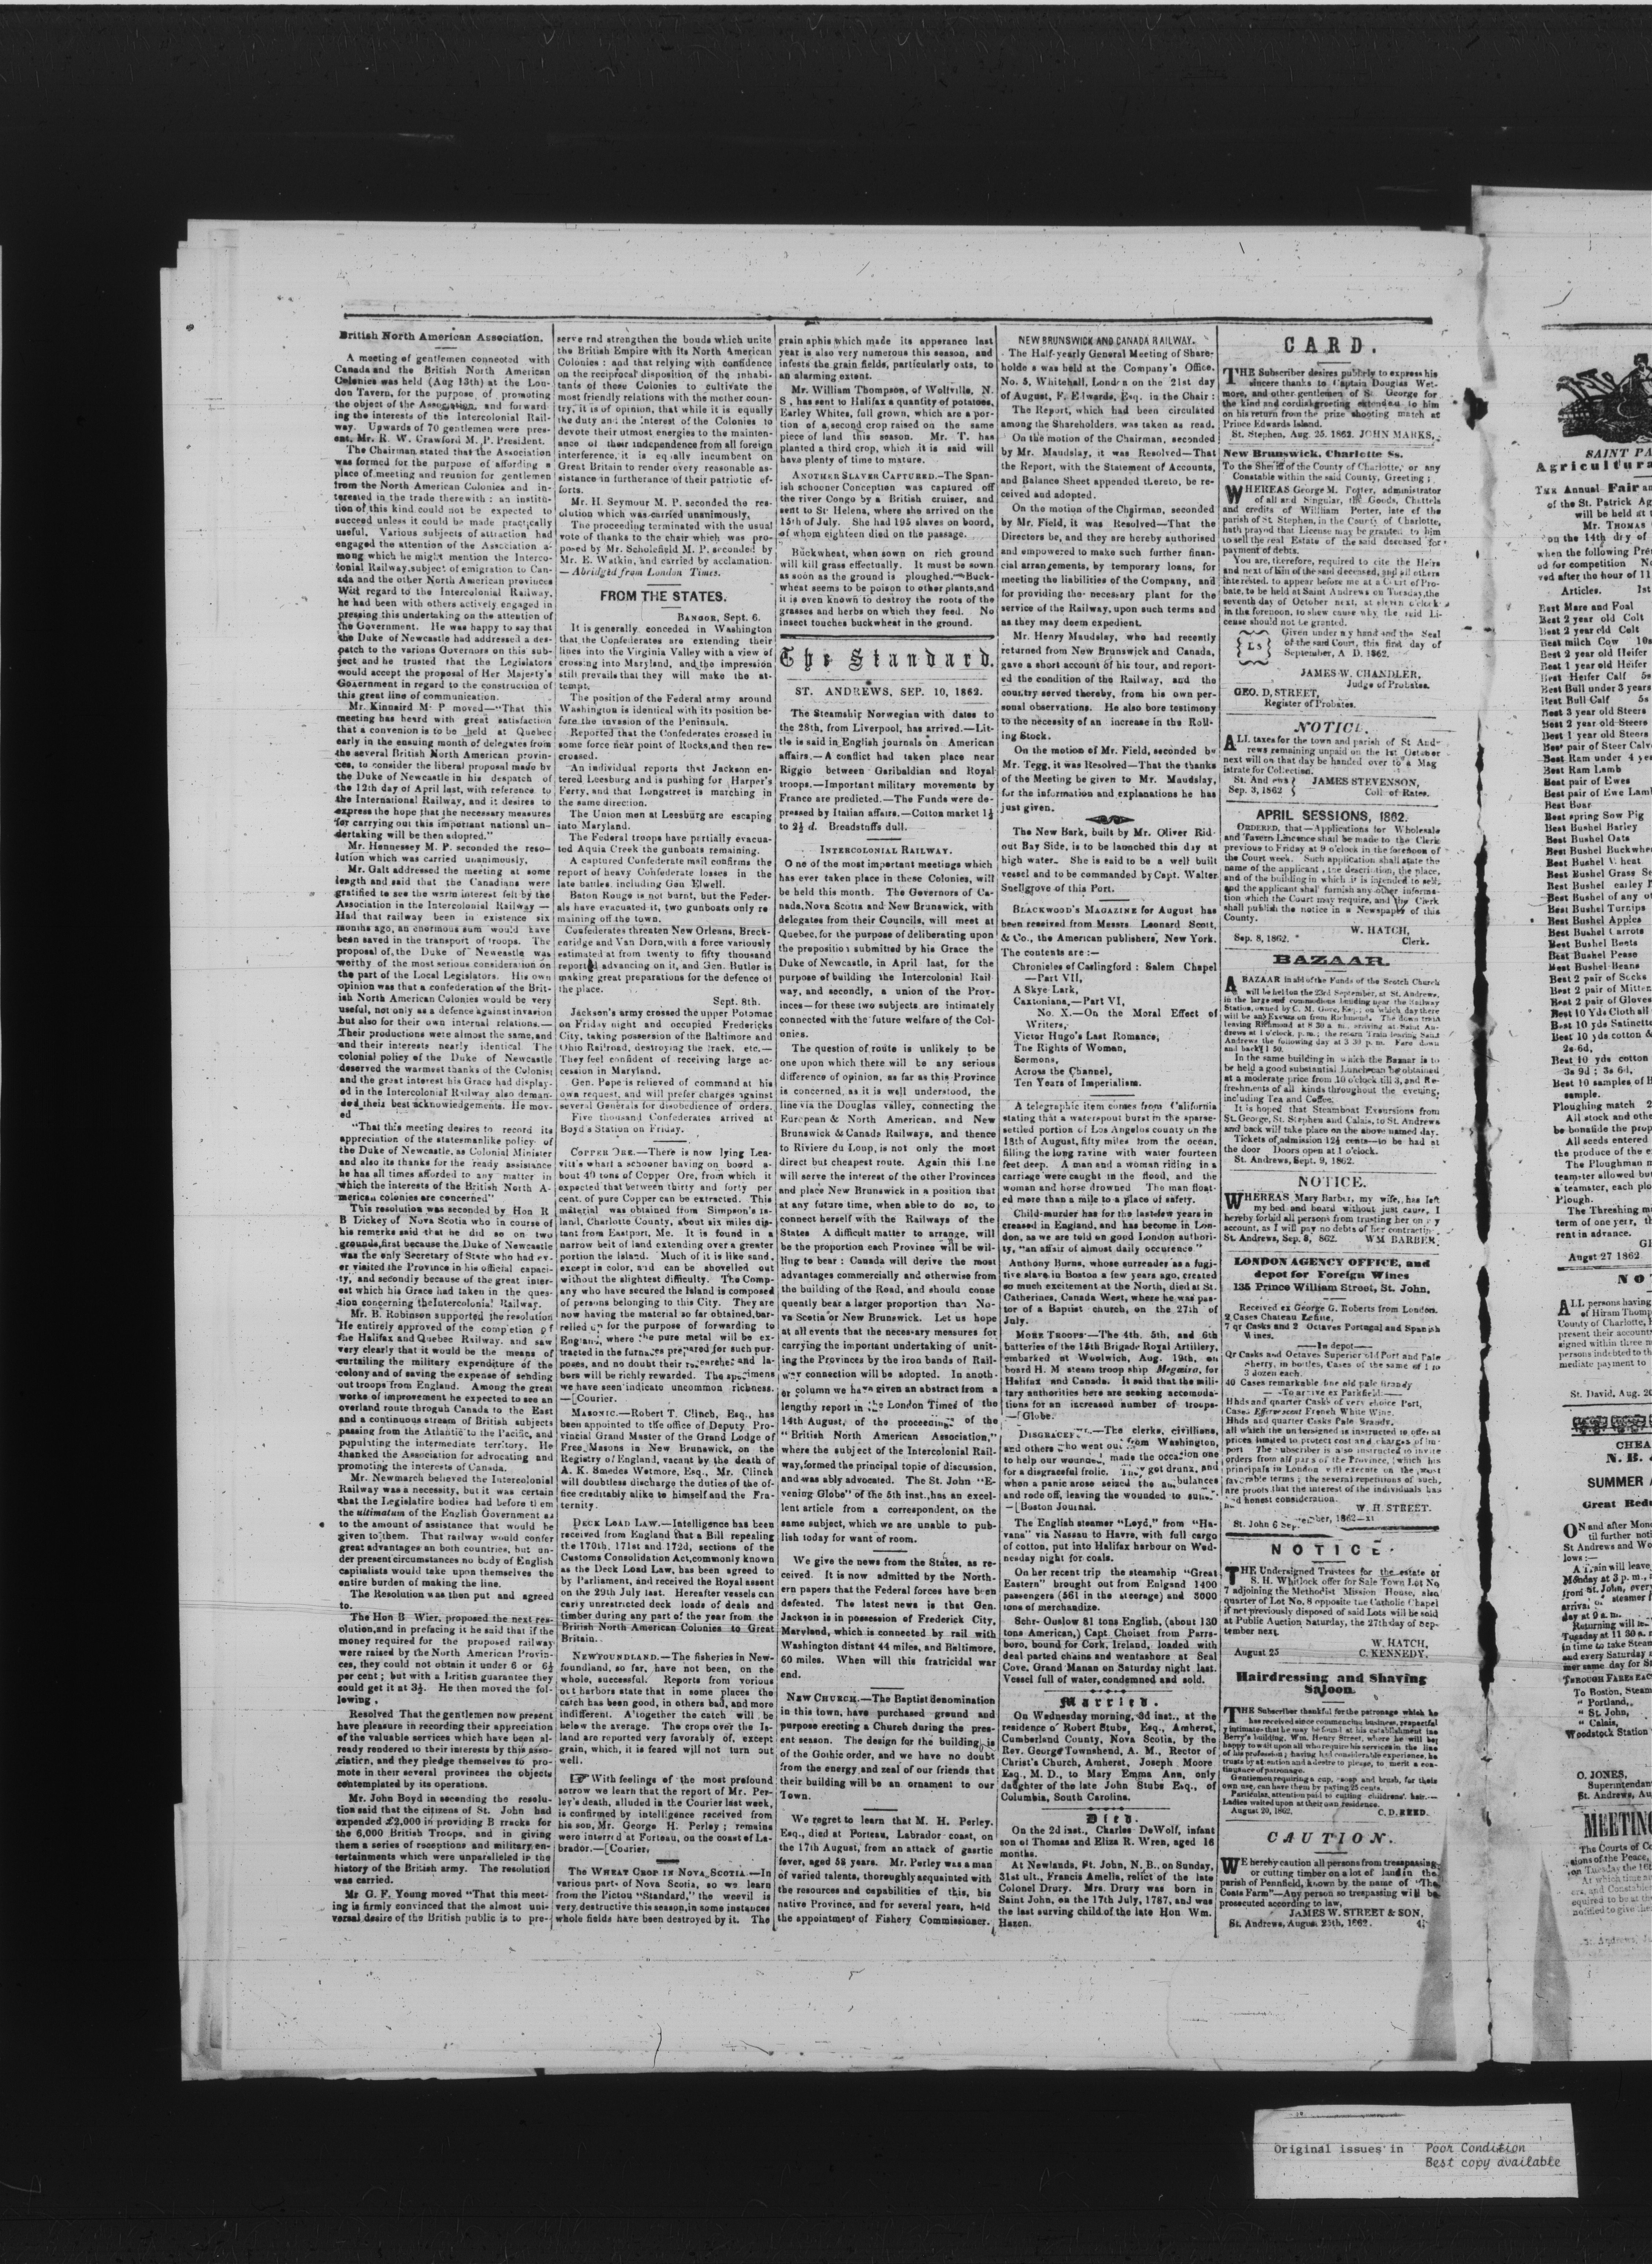 British North American Association.
A meeting of gentlemen connected with
Canada and the British North American
Colonies was held (Aug 13th) at the Lon-
don Tavern, for the purpose of promoting
the object of the Association, and forward-
ing the interests of the Intercolonial Rail-
way. Upwards of 70 gentlemen were pres-
ent, Mr. R. W. Crawford M. P. President.
The Chairman stated that the Association
was formed for the purpose of affording a
place of meeting and reunion for gentlemen
from the North American Colonies and in-
terested in the trade therewith : an institu-
tion of this kind could not be expected to
succeed unless it could be made practically
useful. Various subjects of attraction had
engaged the attention of the Association a-
mong which he might mention the Interco-
lonial Railway, subject of emigration to Can-
ada and the other North American provinces
With regard to the Intercolonial Railway,
he had been with others actively engaged in
pressing this undertaking on the attention of
the Government. He was happy to say that
the Duke of Newcastle had addressed a des-
patch to the various Governors on this sub-
ject and he trusted that the Legislators
would accept the proposal of Her Majesty's
Government in regard to the construction of
this great line of communication.
Mr. Kinnaird M. P moved—"That this
meeting has heard with great satisfaction
that a convenion is to be held at Quebec
early in the ensuing month of delegates from
the several British North American provin-
ces, to consider the liberal proposal made by
the Duke of Newcastle in his despatch of
the 12th day of April last, with reference to
the International Railway, and it desires to
express the hope that the necessary measures
for carrying out this important national un-
dertaking will be then adopted."
Mr. Hennessey M. P. seconded the reso-
lution which was carried unanimously.
Mr. Galt addressed the meeting at some
length and said that the Canadians were
gratified to see the warm interest felt by the
Association in the Intercolonial Railway —
Had that railway been in existence six
months ago, an enormous sum would have
been saved in the transport of troops. The
proposal of the Duke of Newcastle was
worthy of the most serious consideration on
the part of the Local Legislators. His own
opinion was that a confederation of the Brit-
ish North American Colonies would be very
useful, not only as a defence against invasion
but also for their own internal relations.—
Their productions were almost the same, and
and their interests nearly identical The
colonial policy of the Duke of Newcastle
deserved the warmest thanks of the Colonist
and the great interest his Grace had display-
ed in the Intercolonial Railway also deman-
ded their best acknowledgements. He mov-
ed
"That this meeting desires to record its
appreciation of the statesmanlike policy of
the Duke of Newcastle, as Colonial Minister
and also its thanks for the ready assistance
he has all times afforded to any matter in
which the interests of the British North A-
merican colonies are concerned"
This resolution was seconded by Hon R
B Dickey of Nova Scotia who in course of
his remarks said that he did so on two
grounds, first because the Duke of Newcastle
was the only Secretary of State who had ev-
er visited the Province in his official capaci-
ty, and secondly because of the great inter-
est which his Grace had taken in the ques-
tion concerning the Intercolonial Railway.
Mr. B. Robinson supported the resolution
He entirely approved of the completion of
the Halifax and Quebec Railway, and saw
very clearly that it would be the means of
curtailing the military expenditure of the
colony and of saving the expense of sending
out troops from England. Among the great
works of improvement he expected to see an
overland route through Canada to the East
and a continuous stream of British subjects
passing from the Atlantic to the Pacific, and
populating the intermediate territory. He
thanked the Association for advocating and
promoting the interests of Canada.
Mr. Newmarch believed the Intercolonial
Railway was a necessity, but it was certain
that the Legislative bodies had before them
the ultimatum of the English Government as
to the amount of assistance that would be
given to them. That railway would confer
great advantages on both countries, but un-
der present circumstances no body of English
capitalists would take upon themselves the
entire burden of making the line.
The Resolution was then put and agreed
to.
The Hon B Wier, proposed the next res-
olution, and in prefacing it he said that if the
money required for the proposed railway
were raised by the North American Provin-
ces, they could not obtain it under 6 or 6½
per cent ; but with a British guarantee they
could get it at 3½. He then moved the fol-
lowing.
Resolved That the gentlemen now present
have pleasure in recording their appreciation
of the valuable services which have been al-
ready rendered to their interests by this asso-
ciation, and they pledge themselves to pro-
mote in their several provinces the objects
contemplated by its operations.
Mr. John Boyd in seconding the resolu-
tion said that the citizens of St. John had
expended £2,000 in providing B rracks for
the 6,000 British Troops, and in giving
them a series of receptions and military en-
tertainments which were unparalleled in the
history of the British army. The resolution
was carried.
Mr G. F. Young moved "That this meet-
ing is firmly convinced that the almost uni-
versal desire of the British public is to pre-
serve and strengthen the bonds which unite
the British Empire with its North American
Colonies : and that relying with confidence
on the reciprocal disposition of the inhabi-
tants of these Colonies to cultivate the
most friendly relations with the mother coun-
try, it is of opinion, that while it is equally
the duty and the interest of the Colonies to
devote their utmost energies to the mainten-
ance of their independence from all foreign
interference, it is equally incumbent on
Great Britain to render every reasonable as-
sistance in furtherance of their patriotic ef-
forts.
Mr. H. Seymour M. P. seconded the res-
olution which was carried unanimously.
The proceeding terminated with the usual
vote of thanks to the chair which was pro-
posed by Mr. Scholefield M. P. seconded by
Mr. E. Watkin, and carried by acclamation.
—Abridged from London Times.
FROM THE STATES.
BANGOR, Sept. 6.
It is generally conceded in Washington
that the Confederates are extending their
lines into the Virginia Valley with a view of
crossing into Maryland, and the impression
still prevails that they will make the at-
tempt.
The position of the Federal army around
Washington is identical with its position be-
fore the invasion of the Peninsula.
Reported that the Confederates crossed in
some force near point of Rocks, and then re-
crossed.
An individual reports that Jackson en-
tered Leesburg and is pushing for Harper's
Ferry, and that Longstreet is marching in
the same direction.
The Union men at Leesburg are escaping
into Maryland.
The Federal troops have partially evacua-
ted Aquia Creek the gunboats remaining.
A captured Confederate mail confirms the
report of heavy Confederate losses in the
late battles, including Gen Elwell.
Baton Rouge is not burnt, but the Feder-
als have evacuated it, two gunboats only re
maining off the town.
Confederates threaten New Orleans, Breck-
enridge and Van Dorn, with a force variously
estimated at from twenty to fifty thousand
reported advancing on it, and Gen. Butler is
making great preparations for the defence of
the place.
Sept. 8th.
Jackson's army crossed the upper Potomac
on Friday night and occupied Fredericks
City, taking possession of the Baltimore and
Ohio Railroad, destroying the track, etc.—
They feel confident of receiving large ac-
cession in Maryland.
Gen. Pope is relieved of command at his
own request, and will prefer charges against
several Generals for disobedience of orders.
Five thousand Confederates arrived at
Boyd's Station on Friday.
COPPER ORE.—There is now lying Lea-
vitt's wharf a schooner having on board a-
bout 40 tons of Copper Ore, from which it
expected that between thirty and forty per
cent. of pure Copper can be extracted. This
material was obtained from Simpson's Is-
land, Charlotte County, about six miles dis-
tant from Eastport, Me. It is found in a
narrow belt of land extending over a greater
portion the Island. Much of it is like sand,
except is color, and can be shovelled out
without the slightest difficulty. The Comp-
any who have secured the Island is composed
of persons belonging to this City. They are
now having the material so far obtained, bar-
relled up for the purpose of forwarding to
England, where the pure metal will be ex-
tracted in the furnaces prepared for such pur-
poses, and no doubt their researches and la-
bors will be richly rewarded. The specimens
we have seen indicate uncommon richness.
—[Courier.
MASONIC.—Robert T. Clinch, Esq., has
been appointed to the office of Deputy Pro-
vincial Grand Master of the Grand Lodge of
Free Masons in New Brunswick, on the
Registry of England, vacant by the death of
A. K. Smedes Wetmore, Esq., Mr. Clinch
will doubtless discharge the duties of the of-
fice creditably alike to himself and the Fra-
ternity.
DECK LOAD LAW.—Intelligence has been
received from England that a Bill repealing
the 170th, 171st and 172d, sections of the
Customs Consolidation Act, commonly known
as the Deck Load Law, has been agreed to
by Parliament, and received the Royal assent
on the 29th July last. Hereafter vessels can
carry unrestricted deck loads of deals and
timber during any part of the year from the
British North American Colonies to Great
Britain.
NEWFOUNDLAND.—The fisheries in New-
foundland, so far, have not been, on the
whole, successful. Reports from various
out harbors state that in some places the
catch has been good, in others bad, and more
indifferent. Altogether the catch will be
below the average. The crops over the Is-
land are reported very favorably of, except
grain, which, it is feared will not turn out
well.
☞ With feelings of the most profound
sorrow we learn that the report of Mr. Per-
ley's death, alluded in the Courier last week,
is confirmed by intelligence received from
his son, Mr. George H. Perley ; remains
were interred at Forteau, on the coast of La-
brador.—[Courier,
The WHEAT CROP IN NOVA SCOTIA.—In
various parts of Nova Scotia, so we learn
from the Pictou "Standard," the weevil is
very destructive this season, in some instances
whole fields have been destroyed by it. The
grain aphis which made its apperance last
year is also very numerous this season, and
infests the grain fields, particularly oats, to
an alarming extent.
Mr. William Thompson, of Wolfville, N.
S, has sent to Halifax a quantity of potatoes,
Earley Whites, full grown, which are a por-
tion of a second crop raised on the same
piece of land this season. Mr. T. has
planted a third crop, which it is said will
have plenty of time to mature.
ANOTHER SLAVER CAPTURED.—The Span-
ish schooner Conception was captured off
the river Congo by a British cruiser, and
sent to St Helena, where she arrived on the
15th of July. She had 195 slaves on board,
of whom eighteen died on the passage.
Buckwheat, when sown on rich ground
will kill grass effectually. It must be sown
as soon as the ground is ploughed.—Buck-
wheat seems to be poison to other plants, and
it is even known to destroy the roots of the
grasses and herbs on which they feed. No
insect touches buckwheat in the ground.
The Standard.
ST. ANDREWS, SEP. 10, 1862.
The Steamship Norwegian with dates to
the 28th, from Liverpool, has arrived.—Lit-
tle is said in English journals on American
affairs.—A conflict had taken place near
Riggio between Garibaldian and Royal
troops.—Important military movements by
France are predicted.—The Funds were de-
pressed by Italian affairs.—Cotton market 1½
to 2½ d. Breadstuffs dull.
INTERCOLONIAL RAILWAY.
One of the most important meetings which
has ever taken place in these Colonies, will
be held this month. The Governors of Ca-
nada, Nova Scotia and New Brunswick, with
delegates from their Councils, will meet at
Quebec, for the purpose of deliberating upon
the proposition submitted by his Grace the
Duke of Newcastle, in April last, for the
purpose of building the Intercolonial Rail
way, and secondly, a union of the Prov-
inces—for these two subjects are intimately
connected with the future welfare of the Col-
onies.
The question of route is unlikely to be
one upon which there will be any serious
difference of opinion, as far as this Province
is concerned, as it is well understood, the
line via the Douglas valley, connecting the
European & North American, and New
Brunswick & Canada Railways, and thence
to Riviere du Loup, is not only the most
direct but cheapest route. Again this Line
will serve the interest of the other Provinces
and place New Brunswick in a position that
at any future time, when able to do so, to
connect herself with the Railways of the
States A difficult matter to arrange, will
be the proportion each Province will be wil-
ling to bear : Canada will derive the most
advantages commercially and otherwise from
the building of the Road, and should conse
quently bear a larger proportion than No-
va Scotia or New Brunswick. Let us hope
at all events that the necessary measures for
carrying the important undertaking of unit-
ing the Provinces by the iron bands of Rail-
way connection will be adopted. In anoth-
er column we have given an abstract from a
lengthy report in the London Times of the
14th August, of the proceedings of the
"British North American Association,"
where the subject of the Intercolonial Rail-
way, formed the principal topic of discussion,
and was ably advocated. The St. John "E-
vening Globe" of the 5th inst., has an excel-
lent article from a correspondent, on the
same subject, which we are unable to pub-
lish today for want of room.
We give the news from the States, as re-
ceived. It is now admitted by the North-
ern papers that the Federal forces have been
defeated. The latest news is that Gen.
Jackson is in possession of Frederick City,
Maryland, which is connected by rail with
Washington distant 44 miles, and Baltimore,
60 miles. When will this fratricidal war
end.
NEW CHURCH.—The Baptist denomination
in this town, have purchased ground and
purpose erecting a Church during the pres-
ent season. The design for the building is
of the Gothic order, and we have no doubt
from the energy and zeal of our friends that
their building will be an ornament to our
Town.
We regret to learn that M. H. Perley,
Esq., died at Porteau, Labrador coast, on
the 17th August, from an attack of gasrtic
fever, aged 58 years. Mr. Perley was a man
of varied talents, thoroughly acquainted with
the resources and capabilities of this, his
native Province, and for several years, held
the appointment of Fishery Commissioner.
NEW BRUNSWICK AND CANADA RAILWAY.
The Half-yearly General Meeting of Share-
holde s was held at the Company's Office.
No. 5, Whitehall, London on the 21st day
of August, F. Edwards, Esq. in the Chair :
The Report, which had been circulated
among the Shareholders, was taken as read.
On the motion of the Chairman, seconded
by Mr. Maudslay, it was Resolved—That
the Report, with the Statement of Accounts,
and Balance Sheet appended thereto, be re-
ceived and adopted.
On the motion of the Chairman, seconded
by Mr. Field, it was Resolved—That the
Directors be, and they are hereby authorised
and empowered to make such further finan-
cial arrangements, by temporary loans, for
meeting the liabilities of the Company, and
for providing the necessary plant for the
service of the Railway, upon such terms and
as they may deem expedient.
Mr. Henry Maudslay, who had recently
returned from New Brunswick and Canada,
gave a short account of his tour, and report-
ed the condition of the Railway, and the
country served thereby, from his own per-
sonal observations. He also bore testimony
to the necessity of an increase in the Roll-
ing Stock.
On the motion of Mr. Field, seconded by
Mr. Tegg, it was Resolved—That the thanks
of the Meeting be given to Mr. Maudslay,
for the information and explanations he has
just given.
The New Bark, built by Mr. Oliver Rid-
out Bay Side, is to be launched this day at
high water. She is said to be a well built
vessel and to be commanded by Capt. Walter
Snellgrove of this Port.
BLACKWOOD'S MAGAZINE for August has
been received from Messrs. Leonard Scott,
& Co., the American publishers, New York.
The contents are :—
Chronicles of Carlingford : Salem Chapel
—Part VII,
A Skye-Lark,
Caxtoniana,—Part VI,
No. X.—On the Moral Effect of
Writers,
Victor Hugo's Last Romance,
The Rights of Woman,
Sermons,
Across the Channel,
Ten Years of Imperialism.
A telegraphic item comes from California
stating that a waterspout burst in the sparse-
settled portion of Los Angelos county on the
18th of August, fifty miles from the ocean,
filling the long ravine with water fourteen
feet deep. A man and a woman riding in a
carriage were caught in the flood, and the
woman and horse drowned The man float-
ed more than a mile to a place of safety.
Child-murder has for the last few years in
creased in England, and has become in Lon-
don, as we are told on good London authori-
ty, "an affair of almost daily occurence"
Anthony Burns, whose surrender as a fugi-
tive slave in Boston a few years ago, created
so much excitement at the North, died at St.
Catherines, Canada West, where he was pas-
tor of a Baptist church, on the 27th of
July.
MORE TROOPS—The 4th, 5th, and 6th
batteries of the 15th Brigade Royal Artillery,
embarked at Woolwich, Aug. 19th, on
board H. M steam troop ship Megæira, for
Halifax and Canada. It said that the mili-
tary authorities here are seeking accomoda-
tions for an increased number of troops.
—[Globe.
DISGRACEF .—The clerks, civillians,
and others who went out from Washington,
to help our wounded, made the occasion one
for a disgraceful frolic. They got drunk, and
when a panic arose seized the am bulances
and rode off, leaving the wounded to
—[Boston Journal.
The English steamer "Loyd," from "Ha-
vana" via Nassau to Havre, with full cargo
of cotton, put into Halifax harbour on Wed-
nesday night for coals.
On her recent trip the steamship "Great
Eastern" brought out from Enigand 1400
passengers (561 in the steerage) and 3000
tons of merchandize.
Schr Ouslow 81 tons English, (about 130
tons American,) Capt Choiset from Parrs-
boro, bound for Cork, Ireland, loaded with
deal parted chains and went ashore at Seal
Cove, Grand Manan on Saturday night last.
Vessel full of water, condemned and sold.
Married.
On Wednesday morning, 3d inst., at the
residence o' Robert Stubs, Esq., Amherst,
Cumberland County, Nova Scotia, by the
Rev. George Townshend, A. M., Rector of
Christ's Church, Amherst, Joseph Moore
Esq., M. D., to Mary Emma Ann, only
daughter of the late John Stubs Esq., of
Columbia, South Carolina.
Died.
On the 2d inst., Charles DeWolf, infant
son of Thomas and Eliza R. Wren, aged 16
months.
At Newlands, St. John, N. B., on Sunday,
31st ult., Francis Amelia, relict of the late
Colonel Drury. Mrs. Drury was born in
Saint John, on the 17th July, 1787, and was
the last surving child of the late Hon Wm.
Hazen.
CARD.
THE Subscriber desires publicly to express his
sincere thanks to Captain Douglas Wet-
more, and other gentlemen of St. George for
the kind and cordial greeting extended to him
on his return from the prize shooting match at
Prince Edwards Island.
St. Stephen, Aug. 25. 1862. JOHN MARKS.
New Brunswick, Charlotte Ss.
To the Sheriff of the County of Charlotte, or any
Constable within the said County, Greeting ;
WHEREAS George M. Porter, administrator
of all and Singular, the Goods, Chattels
and credits of William Porter, late of the
parish of St. Stephen, in the County of Charlotte,
hath prayed that License may be granted to him
to sell the real Estate of the said deceased for
payment of debts.
You are, therefore, required to cite the Heirs
and next of kin of the said deceased, and all others
interested, to appear before me at a Court of Pro-
bate, to be held at Saint Andrews on Tuesday, the
seventh day of October next, at eleven o'clock
in the forenoon, to shew cause why the said Li-
cense should not be granted.
{LS}
Given under my hand and the Seal
of the said Court, this first day of
September, A D. 1862.
JAMES W. CHANDLER,
Judge of Probates.
GEO. D, STREET,
Register of Probates.
NOTICE.
ALL taxes for the town and parish of St And-
rews remaining unpaid on the 1st October
next will on that day be handed over to a Mag
istrate for Collection.
St. And ews } JAMES STEVENSON,
Sep. 3, 1862 { Coll of Rates.
APRIL SESSIONS, 1862.
ORDERED, that—Applications for Wholesale
and Tavern Lincence shall be made to the Clerk
previous to Friday at 9 o'clock in the forenoon of
the Court week. Such application shall state the
name of the applicant, the description, the place,
and of the building in which it is intended to sell,
and the applicant shall furnish any other informa-
tion which the Court may require, and the Clerk
shall publish the notice in a Newspaper of this
County.
W. HATCH,
Sep. 8, 1862. Clerk.
BAZAAR.
A BAZAAR in aid of the Funds of the Scotch Church
will be held on the 23rd September, at St. Andrews,
in the large and commodious building near the Railway
Station, owned by C. M. Gove, Esq.; on which day there
will be an Excursion from Richmond. The down train
leaving Richmond at 8 30 a m, arriving at Saint An-
drews at 1 o'clock, p. m.; the return Train leaving Saint
Andrews the following day at 3 30 p. m. Fare down
and back $1 50.
In the same building in which the Bazaar is to
be held a good substantial Lunch can be obtained
at a moderate price from 10 o'clock till 3, and Re-
freshments of all kinds throughout the evening,
including Tea and Coffee.
It is hoped that Steamboat Excursions from
St. George, St. Stephen and Calais, to St. Andrews
and back will take place on the above named day.
Tickets of admission 12½ cents—to be had at
the door Doors open at 1 o'clock.
St. Andrews, Sept. 9, 1862.
NOTICE.
WHEREAS Mary Barber, my wife, has left
my bed and board without just cause, I
hereby forbid all persons from trusting her on my
account, as I will pay no debts of her contracting.
St. Andrews, Sep. 8, 862. WM BARBER.
LONDON AGENCY OFFICE, and
depot for Foreign Wines
135 Prince William Street, St. John.
Received ex George G. Roberts from London.
2 Cases Chateau Lefine,
7 qr Casks and 2 Octaves Portugal and Spanish
Wines.
—In depot—
Qr Casks and Octaves Superior old Port and Pale
Sherry, in bottles, Cases of the same of 1 to
3 dozen each.
40 Cases remarkable fine old pale Brandy
—To arrive ex Parkfield—
Hhds and quarter Casks of very choice Port,
Cases Effervescent French White Wine.
Hhds and quarter Casks Pale Brandy,
all which the undersigned is instructed to offer at
prices limited to protect cost and charges of im-
port The subscriber is also instructed to invite
orders from all parts of the Province, which his
principals in London will execute on the most
favorable terms ; the several repetitions of such,
are proofs that the interest of the individuals has
honest consideration.
W. H. STREET.
St. John 6 September, 1862—xi
NOTICE.
THE Undersigned Trustees for the estate of
S. H. Whitlock offer for Sale Town Lot No
7 adjoining the Methodist Mission House, also
quarter of Lot No. 8 opposite the Catholic Chapel
if not previously disposed of said Lots will be sold
at Public Auction Saturday, the 27th day of Sep-
tember next.
W. HATCH,
August 25 C. KENNEDY.
Hairdressing and Shaving
Saloon.
THE Subscriber thankful for the patronage which he
has received since commencing business, respectful
y intimates that he may be found at his establishment in
Berry's building, Wm. Henry Street, where he will be
happy to wait upon all who require his services in the line
of his profession; having had considerable experience, he
trusts by attention and a desire to please, to merit a con-
tinuance of patronage.
Gentlemen requiring a cup, soap and brush, for their
own use, can have them by paying 25 cents.
Particular, attention paid to cutting childrens' hair.—
Ladies waited upon at their own residence.
August 20, 1862. C. D. REED.
CAUTION.
WE hereby caution all persons from tresspassing
or cutting timber on a lot of land in the
parish of Pennfield, known by the name of "The
Coats Farm"—Any person so trespassing will be
prosecuted according to law,
JAMES W. STREET & SON,
St. Andrews, August 25th, 1862. 4i
SAINT PA
Agricultura
THE Annual Fair an
of the St. Patrick Ag
will be held at t
Mr. THOMAS
on the 14th day of
when the following Pre
ed for competition No
ved after the hour of 11
Articles. 1st
Best Mare and Foal
Best 2 year old Colt
Best 2 year old Colt
Best milch Cow 10s
Best 2 year old Heifer
Best 1 year old Heifer
Best Heifer Calf 5s
Best Bull under 3 years
Best Bull Calf 5s
Best 3 year old Steers
Best 2 year old Steers
Best 1 year old Steers
Best pair of Steer Calv
Best Ram under 4 yea
Best Ram Lamb
Best pair of Ewes
Best pair of Ewe Lamb
Best Boar
Best spring Sow Pig
Best Bushel Barley
Best Bushel Oats
Best Bushel Buckwhe
Best Bushel Wheat
Best Bushel Grass Se
Best Bushel earley P
Best Bushel of any ot
Best Bushel Turnips
Best Bushel Apples
Best Bushel Carrots
Best Bushel Beets
Best Bushel Pease
Best Bushel Beans
Best 2 pair of Socks
Best 2 pair of Mitten
Best 2 pair of Gloves
Best 10 Yds Cloth all
Best 10 yds Satinette
Best 10 yds cotton &
2s 6d,
Best 10 yds cotton
3s 9d ; 3s 6d,
Best 10 samples of B
sample.
Ploughing match 2
All stock and othe
be bonafide the prop
All seeds entered
the produce of the e
The Ploughman n
teamster allowed but
a teamster, each plo
Plough.
The Threshing m
term of one year, th
rent in advance.
GE
Augst 27 1862
NOT
ALL persons having
of Hiram Thomp
County of Charlotte,
present their account
signed within three m
persons indebted to th
mediate payment to
St. David, Aug. 20
CHEA
N. B. &
SUMMER A
Great Redu
ON and after Mon
til further noti
St. Andrews and Wo
lows :—
A Train will leave
Monday at 3 p. m.,
from St. John, every
arrival of steamer f
day at 9 a m.
Returning will le
Tuesday at 11 30 a. m
in time to take Steam
and every Saturday
mer same day for St
THROUGH FARES EAC
To Boston, Steam
" Portland,
" St. John,
" Calais,
Woodstock Station
O. JONES,
Superintendan
St. Andrews, Au
MEETING
The Courts of Ge
sions of the Peace,
on Tuesday the 16t
At which time an
ers, and Constables
equired to be at th
notified to give thei
Original issues in Poor Condition
Best copy available